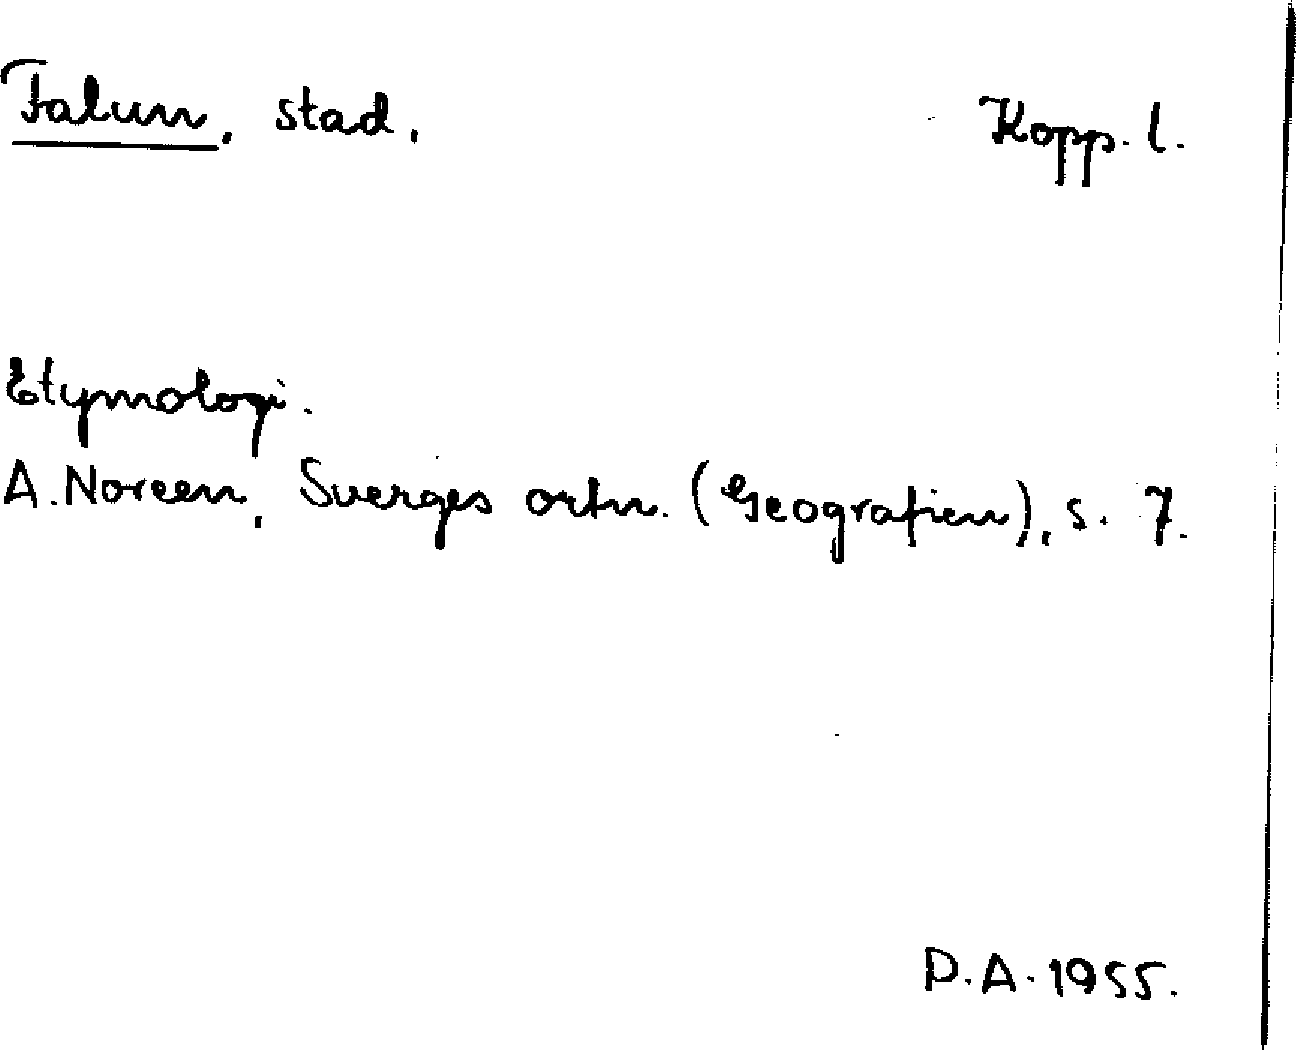 Falun, stad. Kopp. l.
Etymologi.
A. Noreen, Sverges ortn. (Geografien), s. 7.
D.A. 1955.